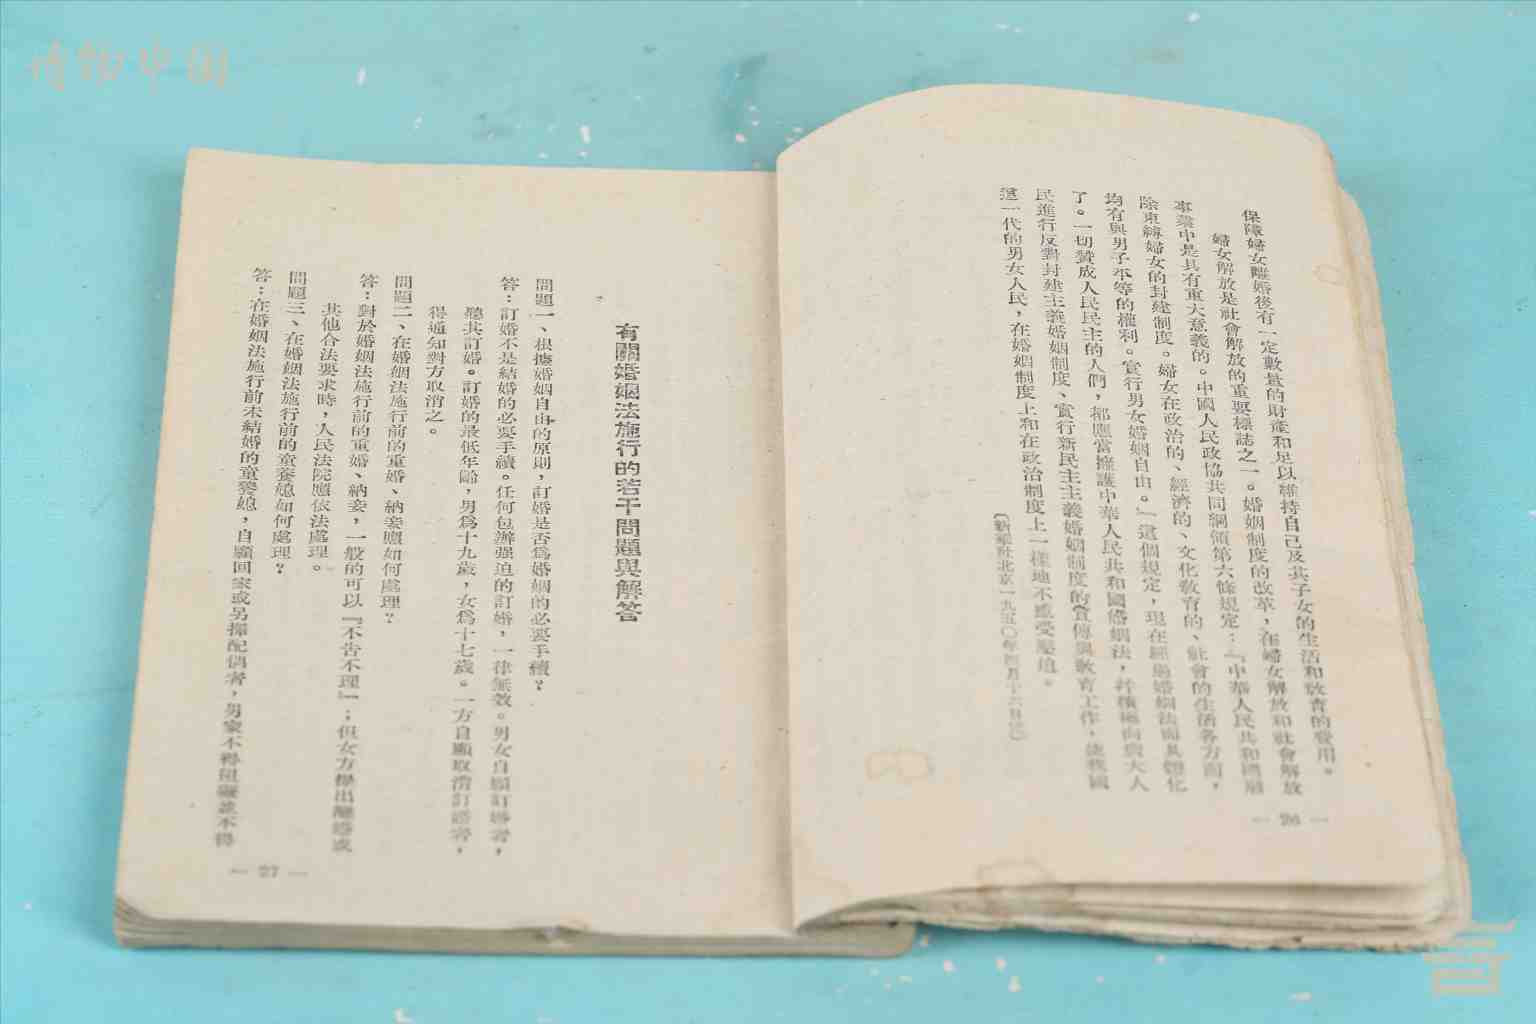 博物中国
保障婦女離婚後有一定數量的財產和足以維持自己及其子女的生活和敎育的費用。
婦女解放是社會解放的重要標誌之一。婚姻制度的改革，在婦女解放和社會解放
事業中是具有重大意義的。中國人民政協共同綱領第六條規定：『中華人民共和國廢
除束縛婦女的封建制度。婦女在政治的、經濟的、文化敎育的、社會的生活各方面，
均有與男子平等的權利。實行男女婚姻自由。』這個規定，現在經過婚姻法而具體化
了。一切贊成人民民主的人們，都應當擁護中華人民共和國婚姻法，并積極向廣大人
民進行反對封建主義婚姻制度、實行新民主主義婚姻制度的宣傳與敎育工作，使我國
這一代的男女人民，在婚姻制度上和在政治制度上一樣地不感受壓迫。
（新華社北京一九五〇年四月十六日電）
— 26 —
有關婚姻法施行的若干問題與解答
問題一、根據婚姻自由的原則，訂婚是否爲婚姻的必要手續？
答：訂婚不是結婚的必要手續。任何包辦强迫的訂婚，一律無效。男女自願訂婚者，
聽其訂婚。訂婚的最低年齡，男爲十九歲，女爲十七歲。一方自願取消訂婚者，
得通知對方取消之。
問題二、在婚姻法施行前的重婚、納妾應如何處理？
答：對於婚姻法施行前的重婚、納妾，一般的可以『不告不理』；但女方提出離婚或
其他合法要求時，人民法院應依法處理。
問題三、在婚姻法施行前的童養媳如何處理？
答：在婚姻法施行前未結婚的童養媳，自願回家或另擇配偶者，男家不得阻礙並不得
— 27 —